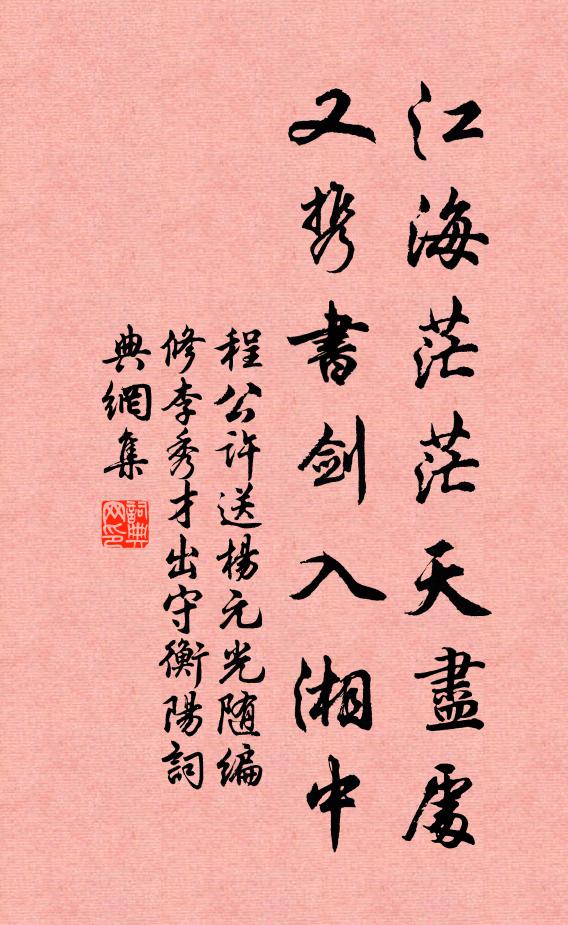 江海茫茫天盡處
又携書剑入湘中
程公许送楊元光随编
修李秀才出守衡陽詞
典網集
詞典網印